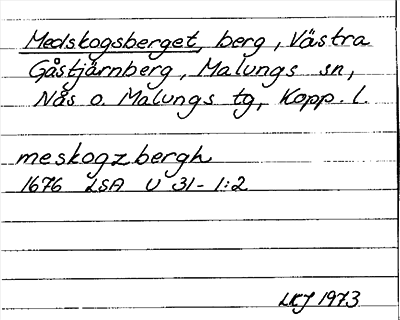 Medskogsberget, berg, Västra
Gåstjärnberg, Malungs sn,
Nås o. Malungs tg, Kopp. l.
meskogzbergh
1676 LSA U 31-1:2
LKJ 1973